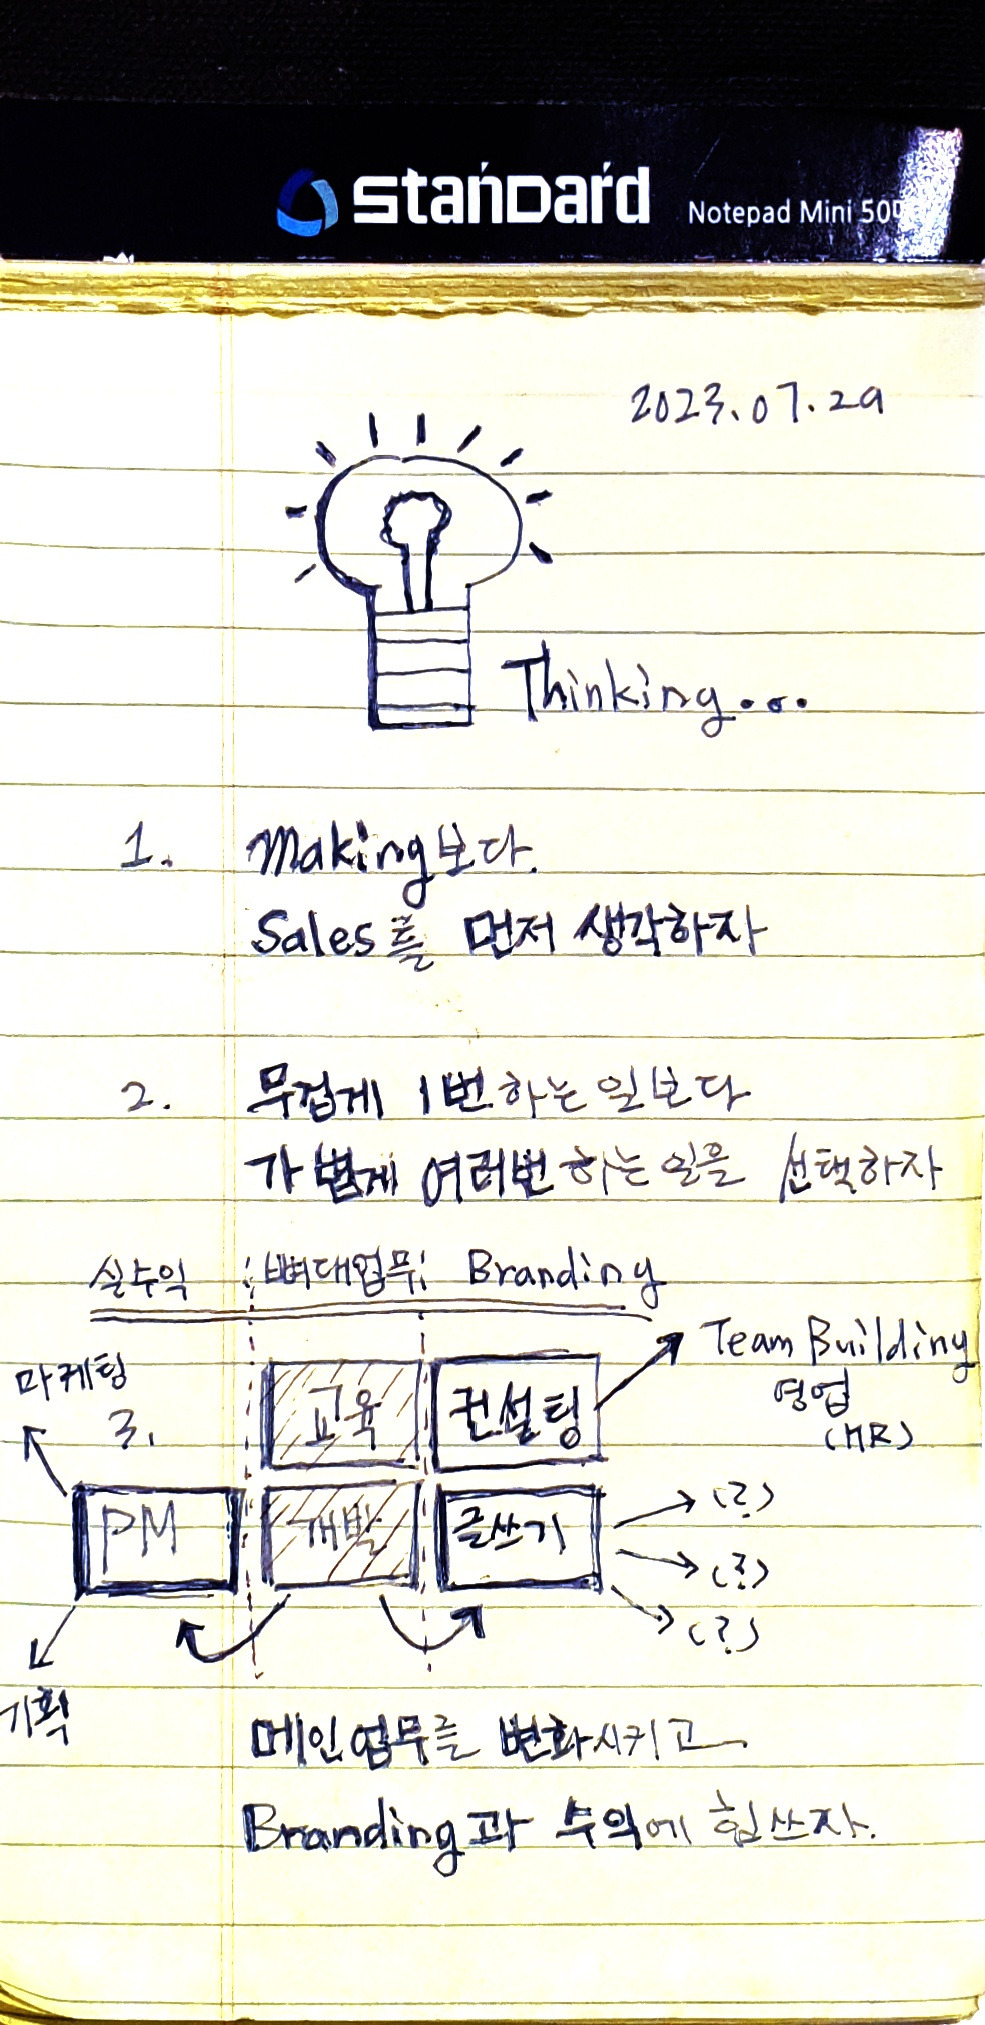 standard Notepad Mini 500
2023.07.29
Thinking...
1. Making보다.
Sales를 먼저 생각하자
2. 무겁게 1번 하는 일보다
가볍게 여러번 하는 일을 선택하자
실수익 뼈대업무 Branding
Team Building
영업
(HR)
마케팅
3.
교육 컨설팅
PM 개발 글쓰기
(?)
(?)
(?)
기획
메인 업무를 변화시키고
Branding과 수익에 힘쓰자.